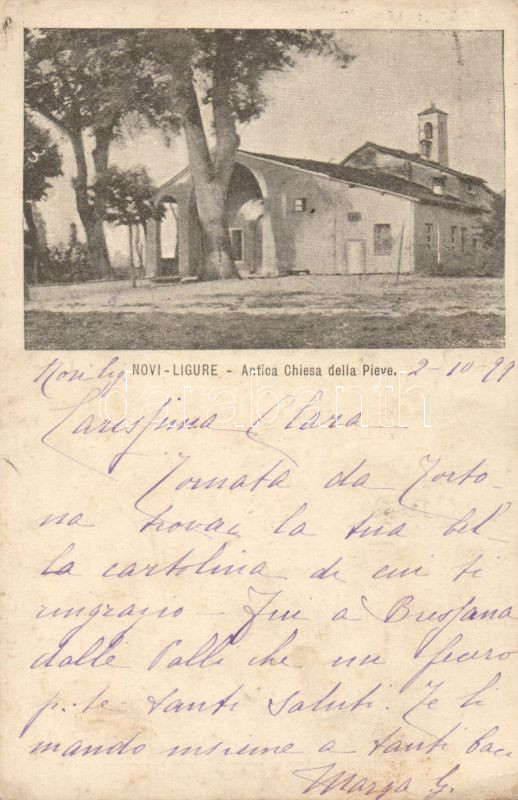 NOVI-LIGURE - Antica Chiesa della Pieve.
Novi lig 2-10-99
Carissima Clara
Tornata da Torto-
na trovai la tua bel
la cartolina di cui ti
ringrazio - Fui a Bressana
dalle Palli che mi fecero
p. te tanti saluti. Te li
mando insieme a tanti baci
Marga G.